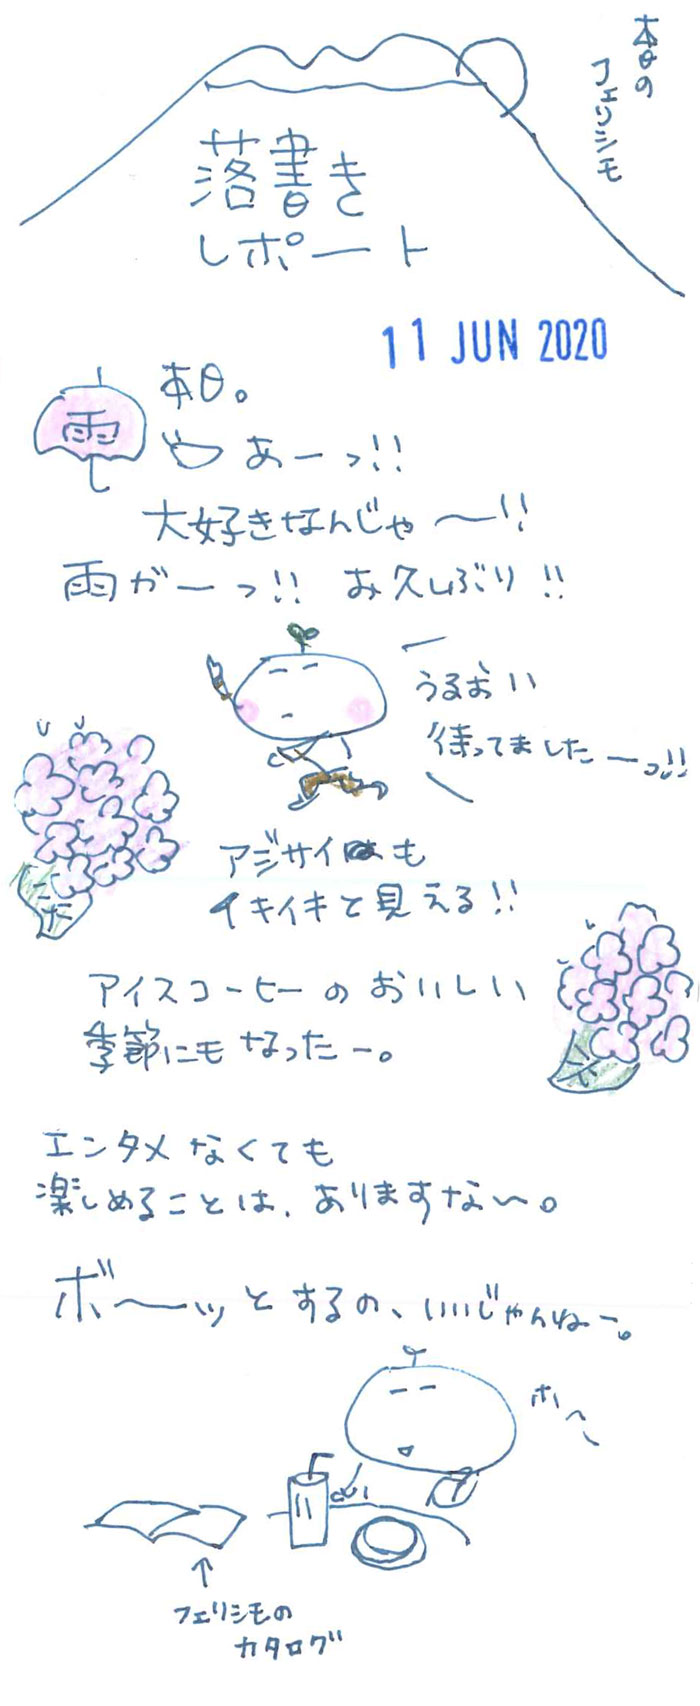 本日の
フェリシモ
落書き
レポート
11 JUN 2020
雨
本日。
あーっ!!
大好きなんじゃ〜!!
雨がーっ!! お久しぶり!!
うるおい
待ってましたーっ!!
アジサイも
イキイキと見える!!
アイスコーヒーのおいしい
季節にもなったー。
エンタメなくても
楽しめることは、ありますな〜。
ボ〜ッとするの、いいじゃんねー。
ホ〜
↑
フェリシモの
カタログ